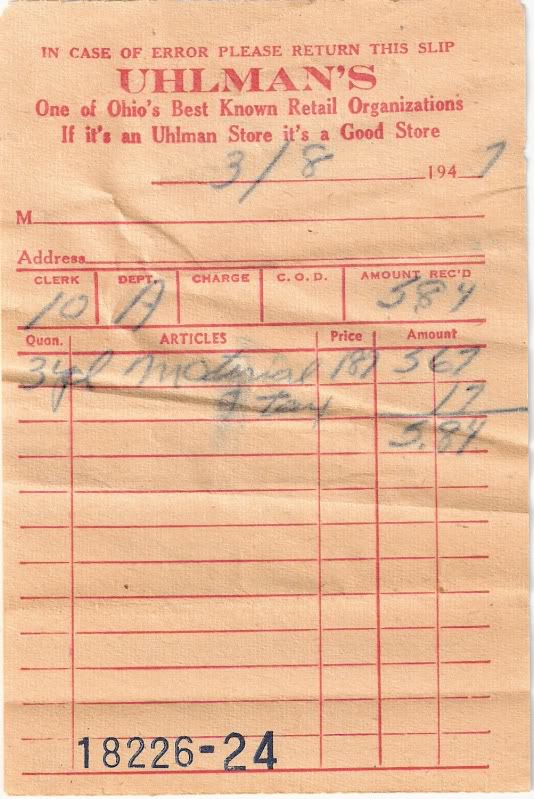 IN CASE OF ERROR PLEASE RETURN THIS SLIP
UHLMAN'S
One of Ohio's Best Known Retail Organizations
If it's an Uhlman Store it's a Good Store
3/8 1947
M
Address
CLERK DEPT. CHARGE C. O. D. AMOUNT REC'D
10 A 584
Quan. ARTICLES Price Amount
3yd Material 189 5 67
tax 17
5.84
18226-24